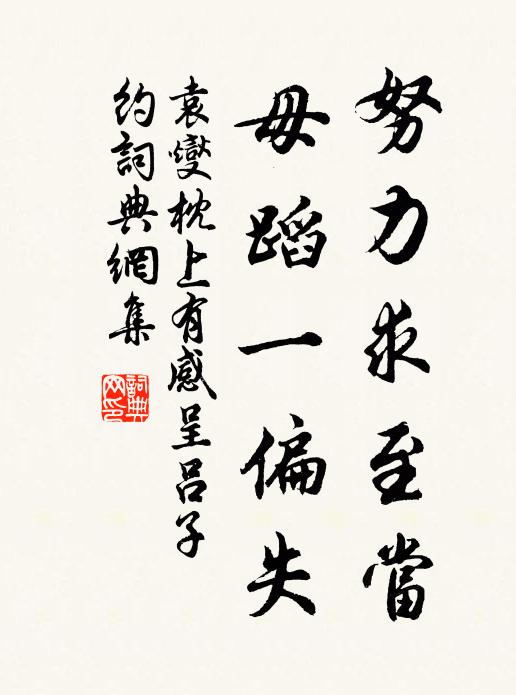 努力求至當
毋蹈一偏失
袁燮枕上有感呈呂子
約詞典網集
詞典
网印